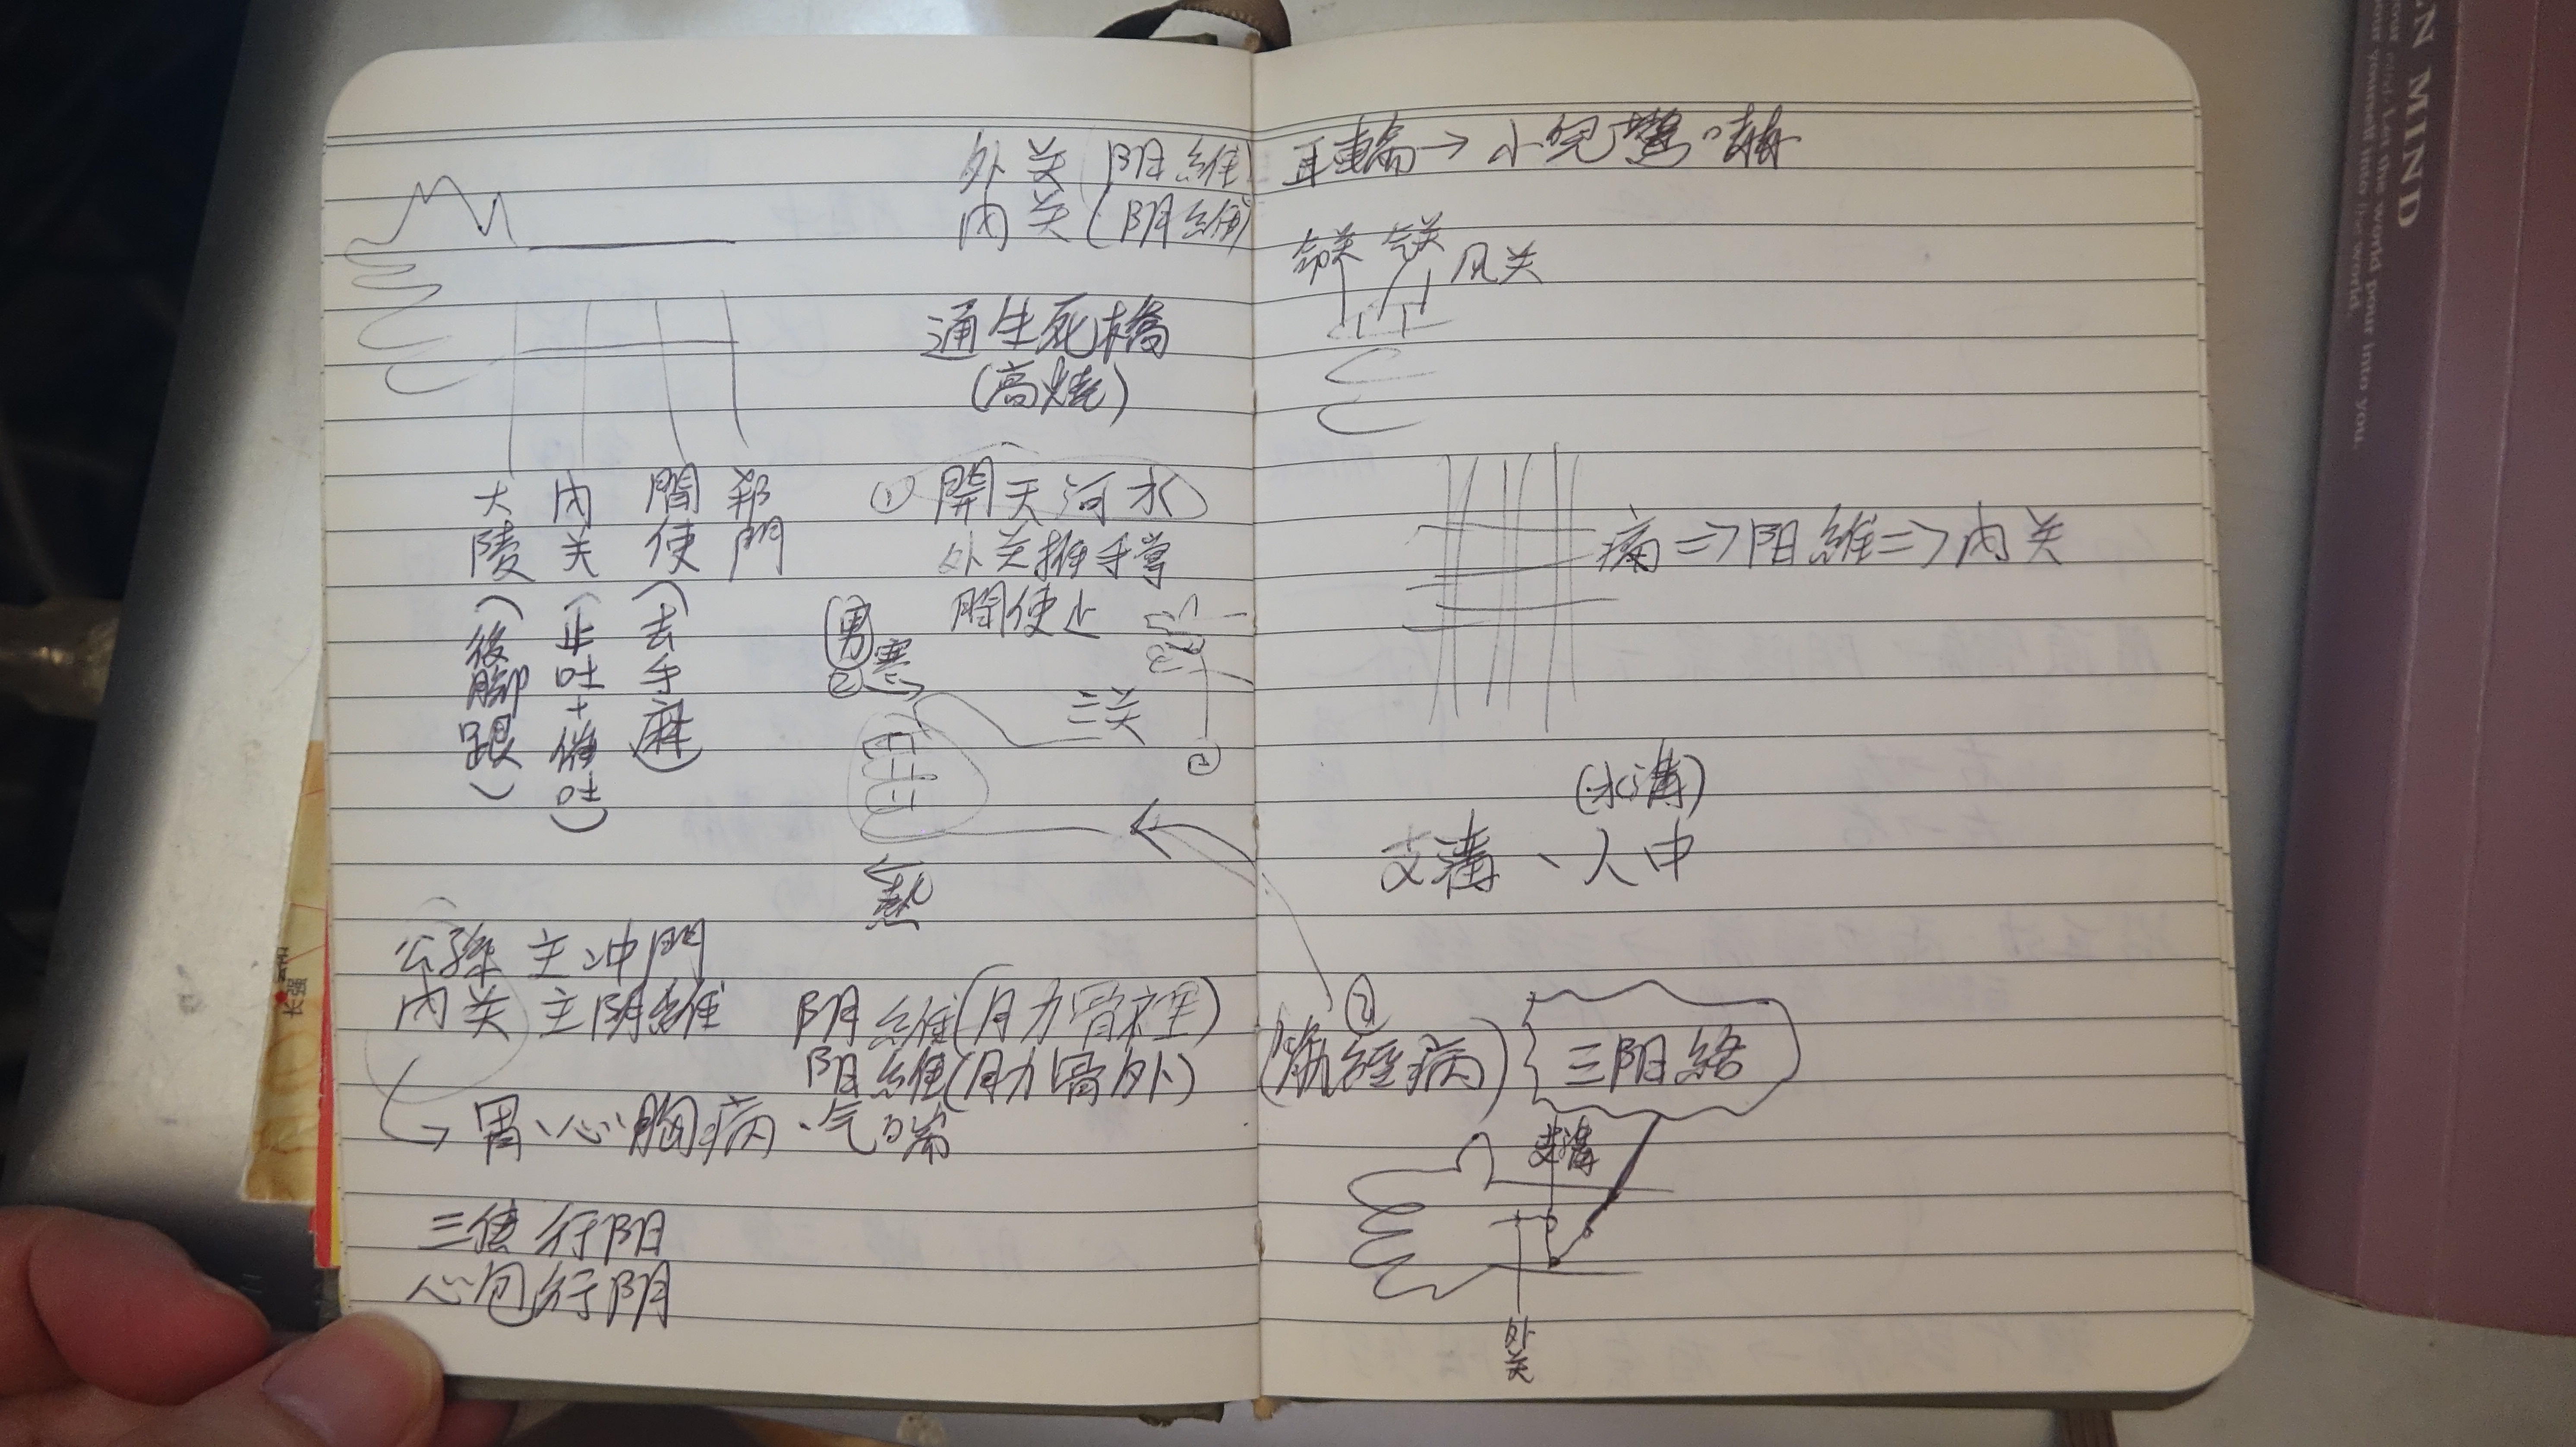 外关(阳維)
内关(阴維)
通生死橋
(高燒)
大陵(後腳跟)
内关(止吐+催吐)
間使(去手麻)
郄門
① 開天河水
外关推手掌
間使止
男
② 寒
三关
熱
公孫 主冲門
内关 主阴維
阴維(肋骨裡)
阳維(肋骨外)
胃、心、胸病、气喘
三焦行阳
心包行阴
耳輪→小兒驚嚇
命关 气关 风关
痛⇒阳維⇒内关
(水溝)
支溝、人中
②
(筋經病)
三阳絡
支溝
外关
EN MIND
Let the world pour into you
yourself into the world.
长强